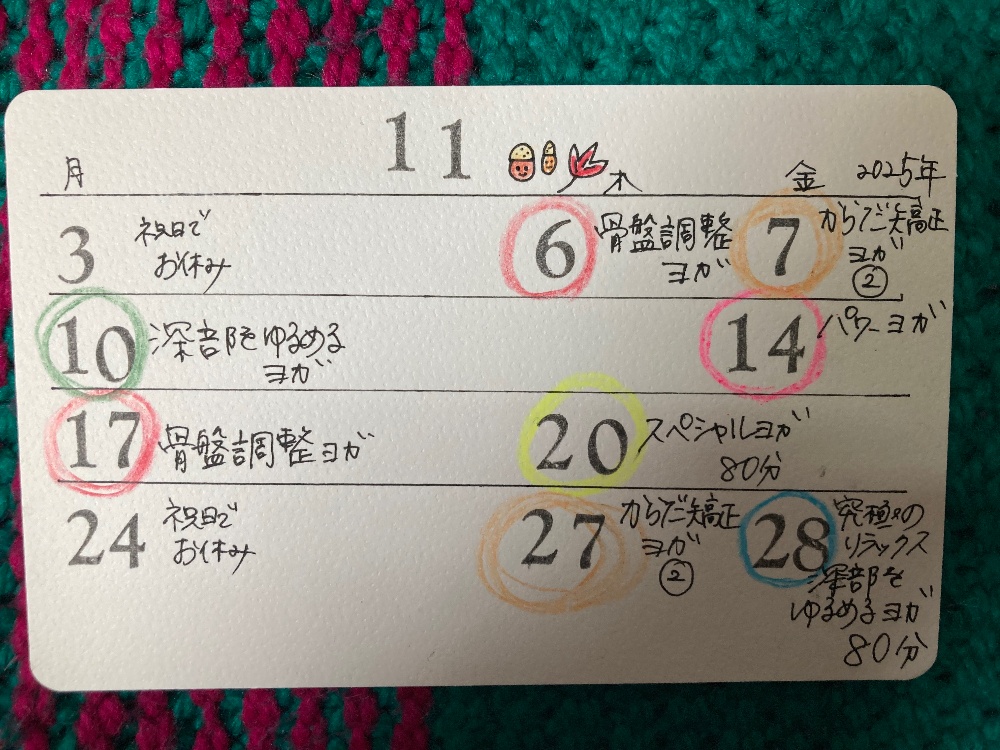 11
月 木 金 2025年
3 祝日で
お休み
6 骨盤調整
ヨガ
7 からだ矯正
ヨガ
②
10 深部をゆるめる
ヨガ
14 パワーヨガ
17 骨盤調整ヨガ
20 スペシャルヨガ
80分
24 祝日で
お休み
27 からだ矯正
ヨガ
②
28 究極の
リラックス
深部を
ゆるめるヨガ
80分